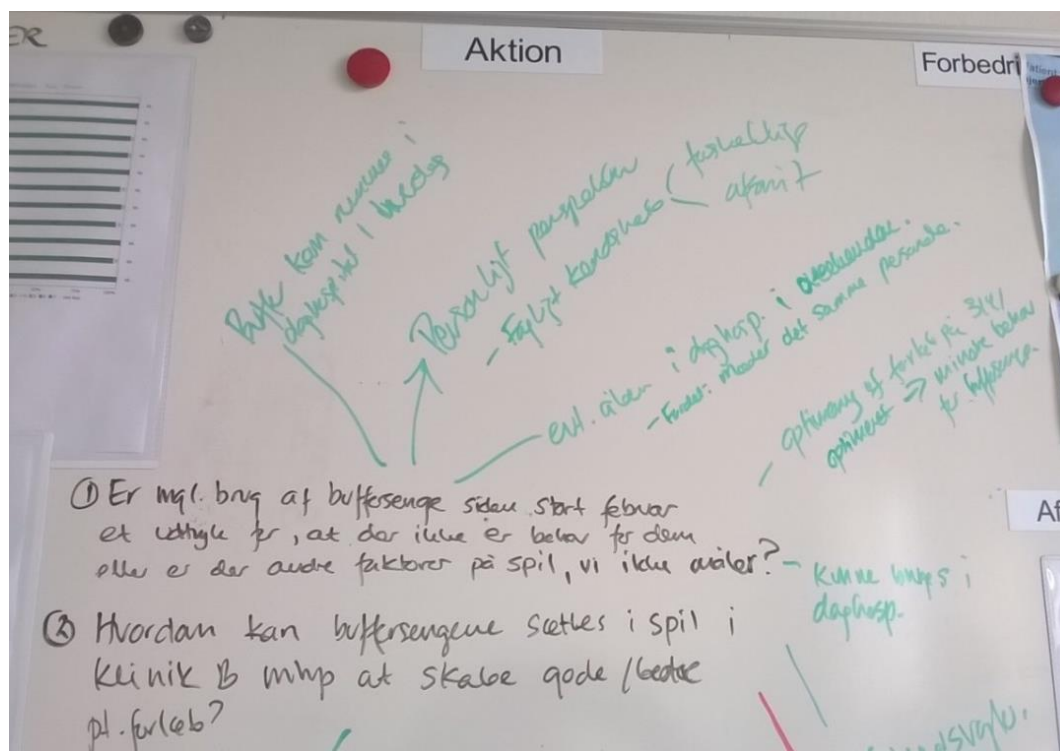 ER
Aktion
Forbedri
Buffer kan rummes i
daghospital i hverdag
Personligt perspektiv
- Fagligt kendskab < forskellig
afsnit
evt. åben i daghosp. i weekenden.
- Fordel: møder det samme personale.
optimering af forløb på 3141
optimeret → mindre behov
for buffersenge.
① Er mgl. brug af buffersenge siden start februar
et udtryk for, at der ikke er behov for dem
eller er der andre faktorer på spil, vi ikke måler?
- Kunne bruges i
daghosp.
② Hvordan kan buffersengene sættes i spil i
Klinik B mhp at skabe gode/bedre
pt. forløb?
Af